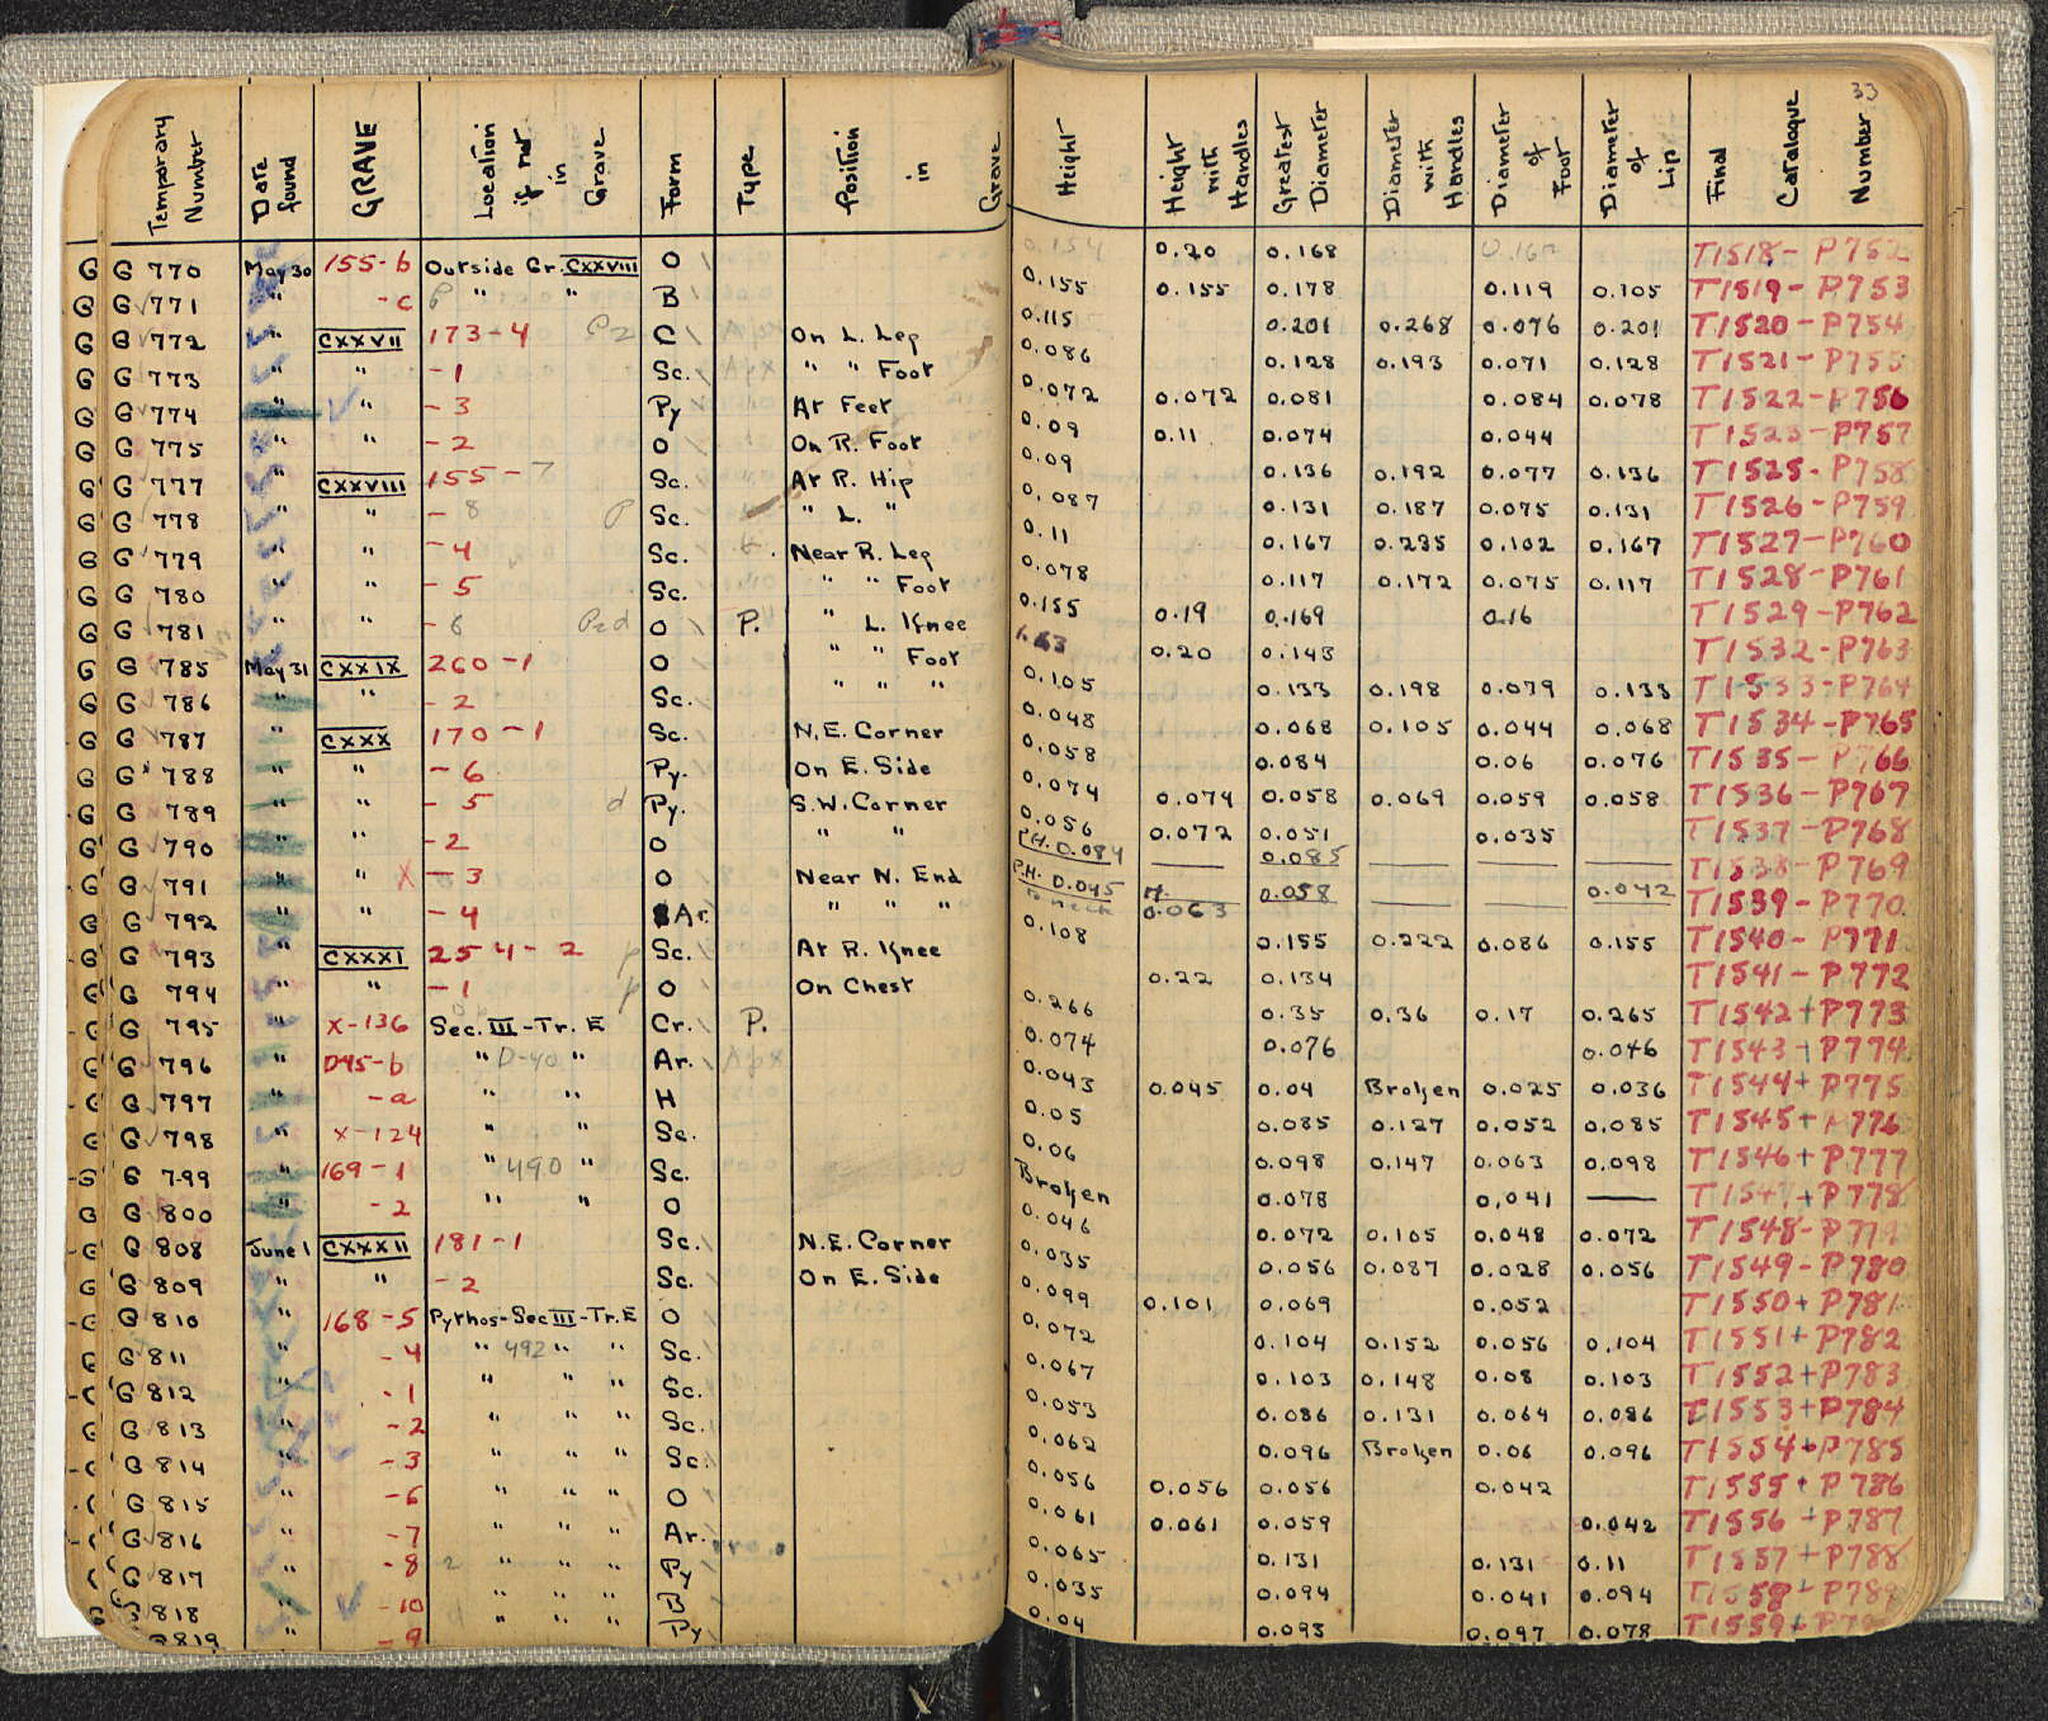 33
Temporary Number | Date found | GRAVE | Location if not in Grave | Form | Type | Position in Grave | Height | Height with Handles | Greatest Diameter | Diameter with Handles | Diameter of Foot | Diameter of Lip | Final Catalogue Number
G G 770 May 30 155-b Outside Gr. CXXVIII O 0.154 0.20 0.168 T1518- P752
G G 771 " -c " " B 0.155 0.155 0.178 0.119 0.105 T1519- P753
G G 772 " CXXVII 173-4 C On L. Leg 0.115 0.201 0.268 0.076 0.201 T1520- P754
G G 773 " " -1 Sc. " " Foot 0.086 0.128 0.193 0.071 0.128 T1521- P755
G G 774 " " -3 Py At Feet 0.072 0.072 0.081 0.084 0.078 T1522- P756
G G 775 " " -2 O On R. Foot 0.09 0.11 0.074 0.044 T1523- P757
G G 777 " CXXVIII 155-7 Sc. At R. Hip 0.09 0.136 0.192 0.077 0.136 T1525- P758
G G 778 " " -8 P Sc. " L. " 0.087 0.131 0.187 0.075 0.131 T1526- P759
G G 779 " " -4 Sc. Near R. Leg 0.11 0.167 0.235 0.102 0.167 T1527- P760
G G 780 " " -5 Sc. " " Foot 0.078 0.117 0.172 0.075 0.117 T1528- P761
G G 781 " " O P. " L. Knee 0.155 0.19 0.169 0.16 T1529- P762
G G 785 May 31 CXXIX 260-1 O " " Foot 0.20 0.143 T1532- P763
G G 786 " " -2 Sc. " " " 0.105 0.133 0.198 0.079 0.133 T1533- P764
G G 787 " CXXX 170-1 Sc. N.E. Corner 0.048 0.068 0.105 0.044 0.068 T1534- P765
G G 788 " " -6 Py. On E. Side 0.058 0.084 0.06 0.076 T1535- P766
G G 789 " " -5 d Py. S.W. Corner 0.074 0.074 0.058 0.069 0.059 0.058 T1536- P767
G G 790 " " -2 O " " 0.056 0.072 0.051 0.035 T1537- P768
G G 791 " " X -3 O Near N. End P.H. 0.084 — 0.085 — — — T1538- P769
G G 792 " " -4 Ar. " " " P.H. 0.045 to neck H. 0.063 0.058 — — 0.042 T1539- P770
G G 793 " CXXXI 254-2 p Sc. At R. Knee 0.108 0.155 0.222 0.086 0.155 T1540- P771
G G 794 " " -1 p O On Chest 0.22 0.134 T1541- P772
G G 795 " X-136 Sec. III-Tr. E Cr. P. 0.266 0.35 0.36 0.17 0.265 T1542+ P773
G G 796 " D45-b " D-40 " Ar. 0.074 0.076 0.046 T1543+ P774
G G 797 " -a " " H 0.043 0.045 0.04 Broken 0.025 0.036 T1544+ P775
G G 798 " X-124 " " Sc. 0.05 0.085 0.127 0.052 0.085 T1545+ P776
G G 799 " 169-1 " 490 " Sc. 0.06 0.098 0.147 0.063 0.098 T1546+ P777
G G 800 " -2 " " O Broken 0.078 0.041 — T1547+ P778
G G 808 June 1 CXXXII 181-1 Sc. N.E. Corner 0.046 0.072 0.105 0.048 0.072 T1548- P779
G G 809 " " -2 Sc. On E. Side 0.035 0.056 0.087 0.028 0.056 T1549- P780
G G 810 " 168-5 Pyrhos-Sec III-Tr. E O 0.099 0.101 0.069 0.052 T1550+ P781
G G 811 " -4 " 492 " " Sc. 0.072 0.104 0.152 0.056 0.104 T1551+ P782
G G 812 " -1 " " " Sc. 0.067 0.103 0.148 0.08 0.103 T1552+ P783
G G 813 " -2 " " " Sc. 0.053 0.086 0.131 0.064 0.086 T1553+ P784
G 814 " -3 " " " Sc. 0.062 0.096 Broken 0.06 0.096 T1554+ P785
G 815 " -6 " " " O 0.056 0.056 0.056 0.042 T1555+ P786
G 816 " -7 " " " Ar. 0.061 0.061 0.059 0.042 T1556+ P787
G 817 " -8 " " " Py 0.065 0.131 0.131 0.11 T1557+ P788
G 818 " -10 " " " B 0.035 0.094 0.041 0.094 T1558+ P789
G819 " -9 " " " Py 0.04 0.093 0.097 0.078 T1559+